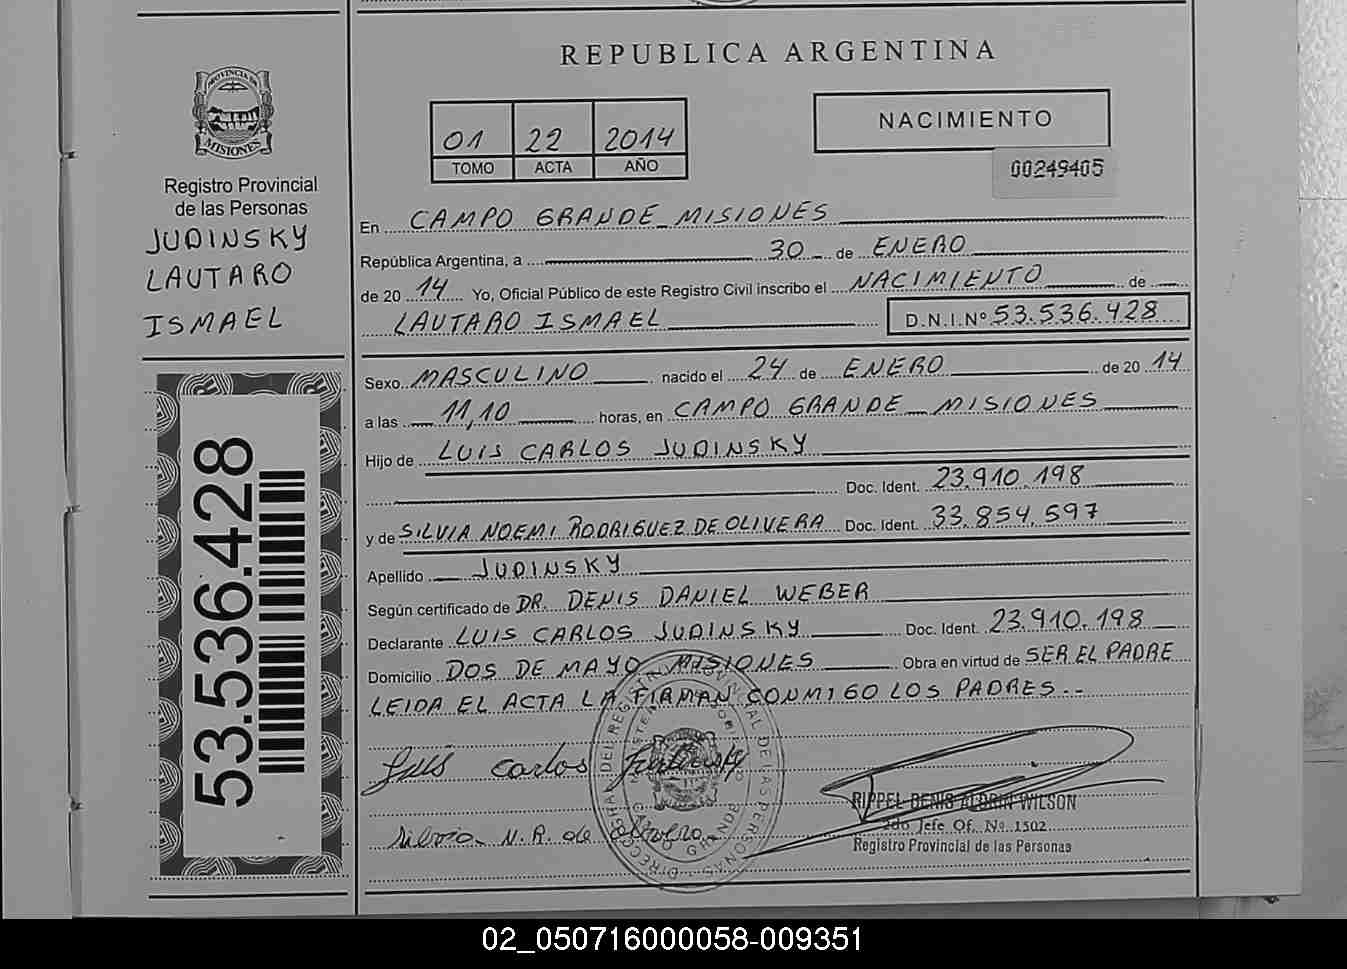 REPUBLICA ARGENTINA
PROVINCIA DE
MISIONES
Registro Provincial
de las Personas
JUDINSKY
LAUTARO
ISMAEL
53.536.428
01 22 2014
TOMO ACTA AÑO
NACIMIENTO
00249405
En CAMPO GRANDE MISIONES
República Argentina, a 30 de ENERO
de 20 14 Yo, Oficial Público de este Registro Civil inscribo el NACIMIENTO de
LAUTARO ISMAEL D.N.I.Nº 53.536.428
Sexo MASCULINO nacido el 24 de ENERO de 20 14
a las 11,10 horas, en CAMPO GRANDE MISIONES
Hijo de LUIS CARLOS JUDINSKY
Doc. Ident. 23.910.198
y de SILVIA NOEMI RODRIGUEZ DE OLIVERA Doc. Ident. 33.854.597
Apellido JUDINSKY
Según certificado de DR. DENIS DANIEL WEBER
Declarante LUIS CARLOS JUDINSKY Doc. Ident. 23.910.198
Domicilio DOS DE MAYO MISIONES Obra en virtud de SER EL PADRE
LEIDA EL ACTA LA FIRMAN CONMIGO LOS PADRES.-
Luis Carlos Judinsky
Silvia N. R. de Olivera
RIPPEL DENIS ALDRIN WILSON
2do Jefe Of. Nº 1502
Registro Provincial de las Personas
02_050716000058-009351